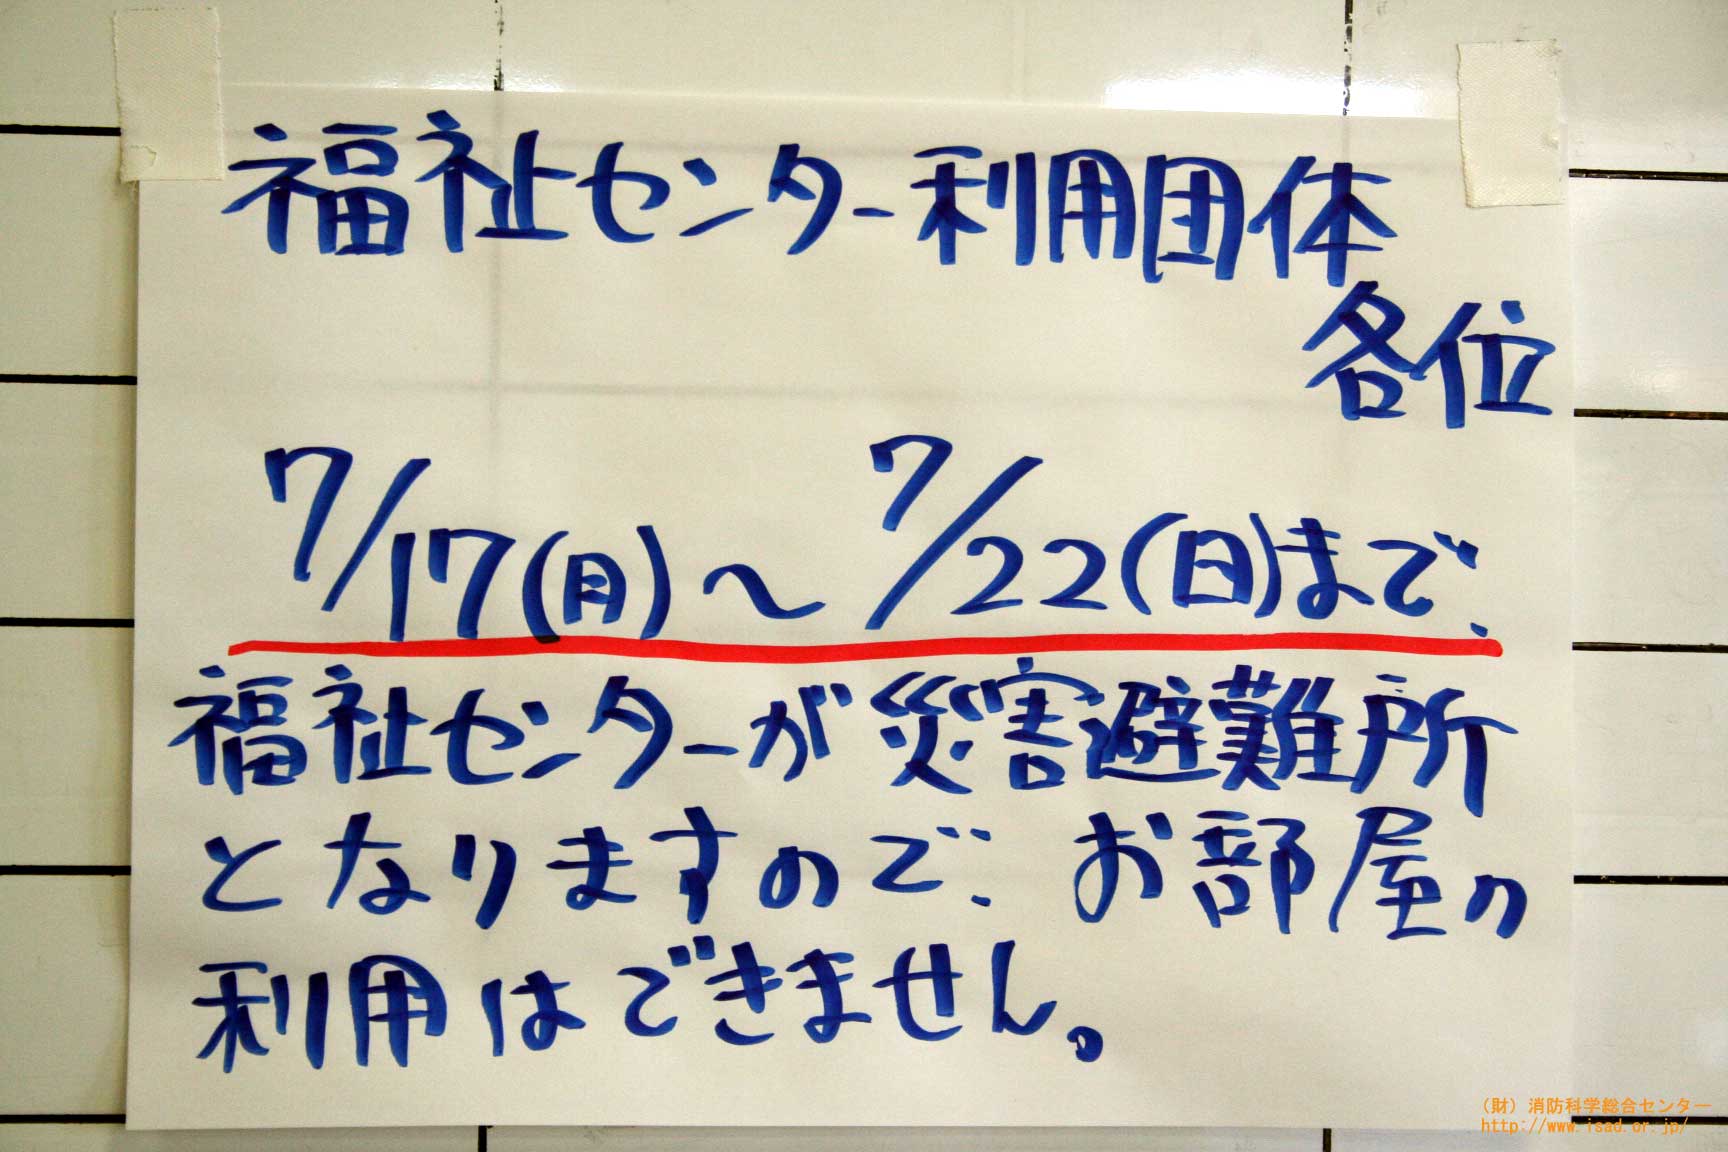 福祉センター利用団体
各位
7/17(月)～7/22(日)まで、
福祉センターが災害避難所
となりますので、お部屋の
利用はできません。
（財）消防科学総合センター
http://www.isad.or.jp/